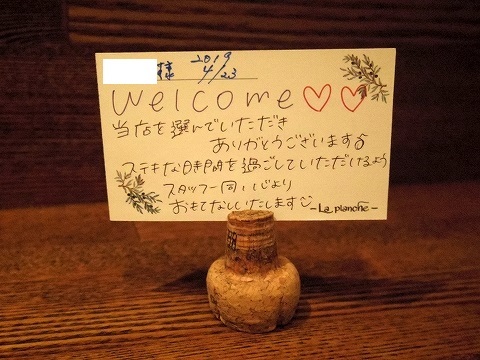 様 2019 4/23
Welcome♡♡
当店を選んでいただき
ありがとうございます♪
ステキな時間を過ごしていただけるよう
スタッフ一同、心より
おもてなしいたします
-La planche-